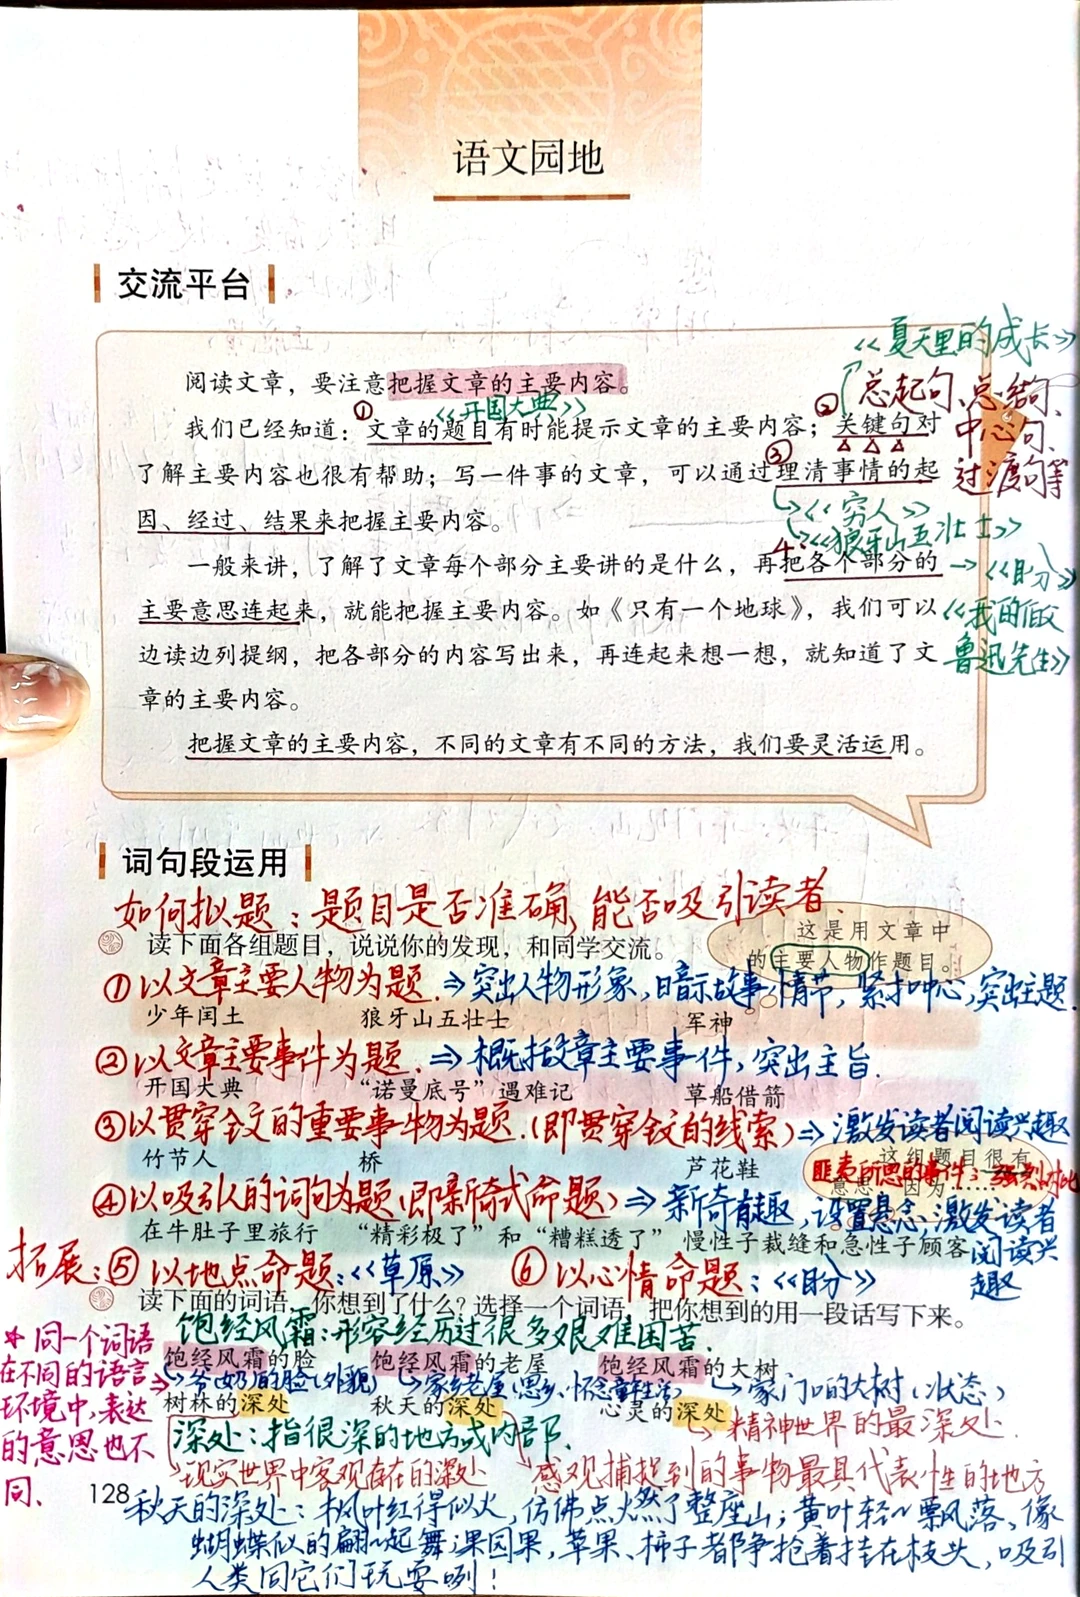 语文园地
交流平台
《夏天里的成长》
阅读文章，要注意把握文章的主要内容。
总起句、总结句、
①
《开国大典》
②
我们已经知道：文章的题目有时能提示文章的主要内容；关键句对
中心句、
③
了解主要内容也很有帮助；写一件事的文章，可以通过理清事情的起
过渡句等
《穷人》
因、经过、结果来把握主要内容。
《狼牙山五壮士》
4.
一般来讲，了解了文章每个部分主要讲的是什么，再把各个部分的
《盼》
主要意思连起来，就能把握主要内容。如《只有一个地球》，我们可以
《我的伯父
边读边列提纲，把各部分的内容写出来，再连起来想一想，就知道了文
鲁迅先生》
章的主要内容。
把握文章的主要内容，不同的文章有不同的方法，我们要灵活运用。
词句段运用
如何拟题：题目是否准确，能否吸引读者.
这是用文章中
的主要人物作题目。
读下面各组题目，说说你的发现，和同学交流。
①以文章主要人物为题.⇒突出人物形象，暗示故事情节，紧扣中心，突出主题.
少年闰土 狼牙山五壮士 军神
②以文章主要事件为题.⇒概括文章主要事件，突出主旨.
开国大典 “诺曼底号”遇难记 草船借箭
③以贯穿全文的重要事物为题.(即贯穿全文的线索)⇒激发读者阅读兴趣
竹节人 桥 芦花鞋
这组题目很有
意思，因为……
④以吸引人的词句为题(即新奇式命题)⇒新奇有趣，设置悬念，激发读者
阅读兴
趣
在牛肚子里旅行 “精彩极了”和“糟糕透了” 慢性子裁缝和急性子顾客
拓展：⑤以地点命题：《草原》 ⑥以心情命题：《盼》
读下面的词语，你想到了什么？选择一个词语，把你想到的用一段话写下来。
饱经风霜：形容经历过很多艰难困苦.
*同一个词语
在不同的语言
环境中，表达
的意思也不
同、
饱经风霜的脸 饱经风霜的老屋 饱经风霜的大树
爷(奶)的脸(外貌) 家乡老屋(思乡、怀念童年生活) 家门口的大树(状态)
树林的深处 秋天的深处 心灵的深处
深处：指很深的地方或内部、
精神世界的最深处.
现实世界中客观存在的深处 感观捕捉到的事物最具代表性的地方
128
秋天的深处：枫叶红得似火，仿佛点燃了整座山；黄叶轻轻飘落、像
蝴蝶似的翩翩起舞；果园里，苹果、柿子都争抢着挂在枝头，吸引
人类同它们玩耍咧！